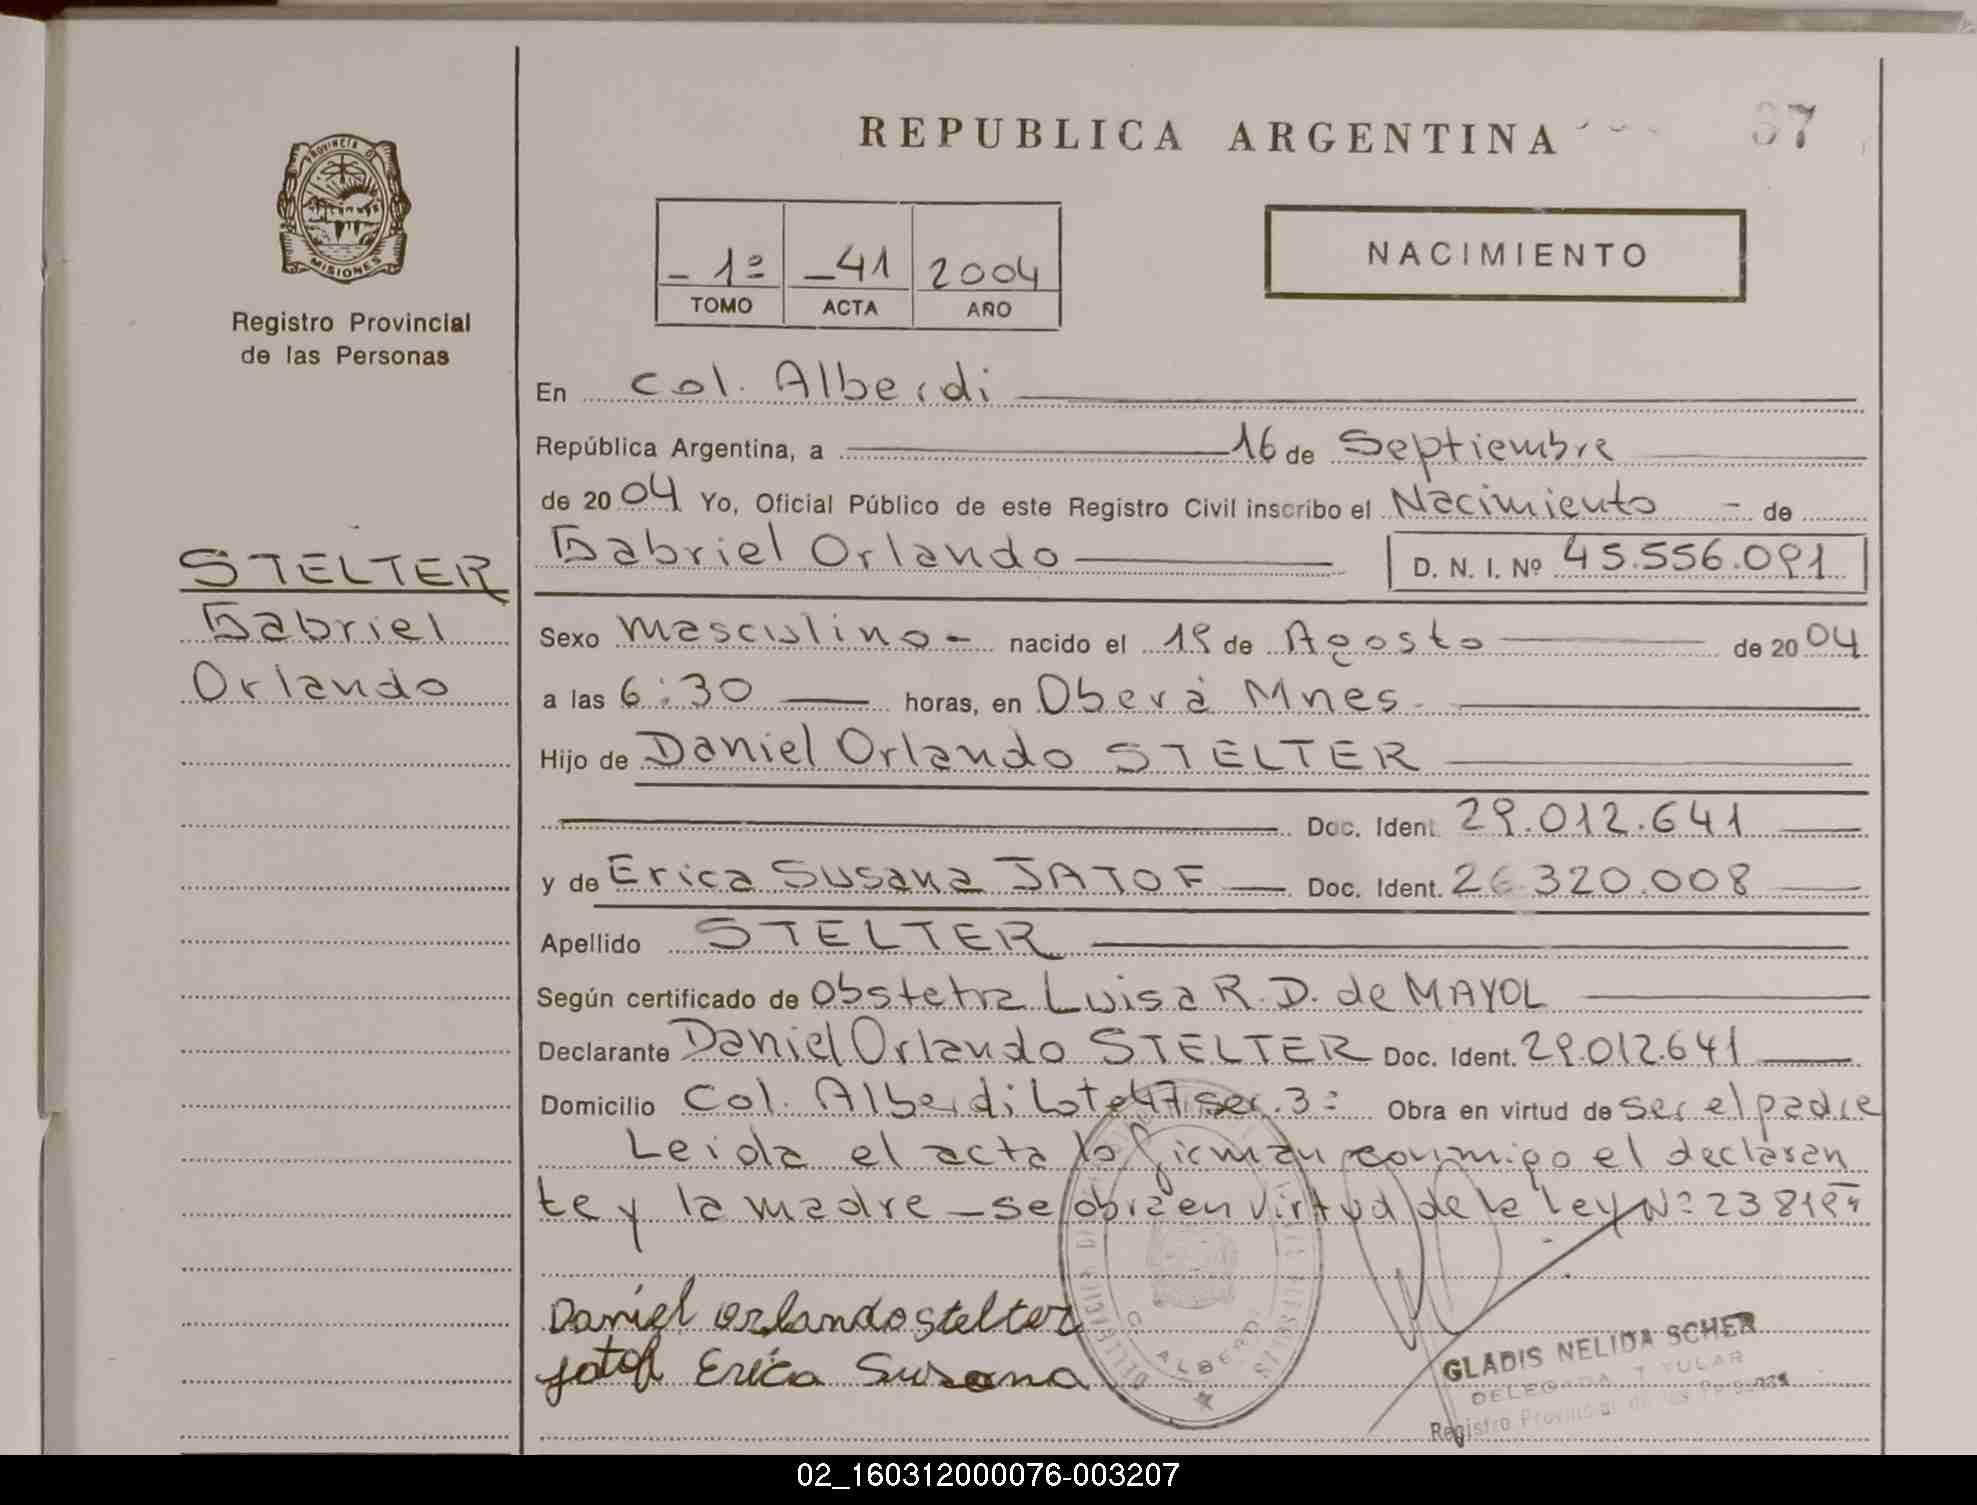 REPUBLICA ARGENTINA
37
PROVINCIA D
MISIONES
Registro Provincial
de las Personas
- 1º - 41 2004
TOMO ACTA AÑO
NACIMIENTO
En Col. Alberdi
República Argentina, a 16 de Septiembre
de 2004 Yo, Oficial Público de este Registro Civil inscribo el Nacimiento - de
Gabriel Orlando D. N. I. Nº 45.556.091
STELTER
Gabriel
Orlando
Sexo Masculino - nacido el 19 de Agosto de 2004
a las 6:30 horas, en Oberá Mnes.
Hijo de Daniel Orlando STELTER
Doc. Ident. 29.012.641
y de Erica Susana JATOF Doc. Ident. 26.320.008
Apellido STELTER
Según certificado de Obstetra Luisa R. D. de MAYOL
Declarante Daniel Orlando STELTER Doc. Ident. 29.012.641
Domicilio Col. Alberdi Lote 47 sec. 3º Obra en virtud de ser el padre
Leida el acta lo firman conmigo el declaran
te y la madre - se obra en virtud de la Ley Nº 23819
Daniel orlando stelter
jatof Erica Susana
C. ALBERDI
GLADIS NELIDA SCHER
DELEGADA TITULAR
Registro Provincial de las Personas
02_160312000076-003207